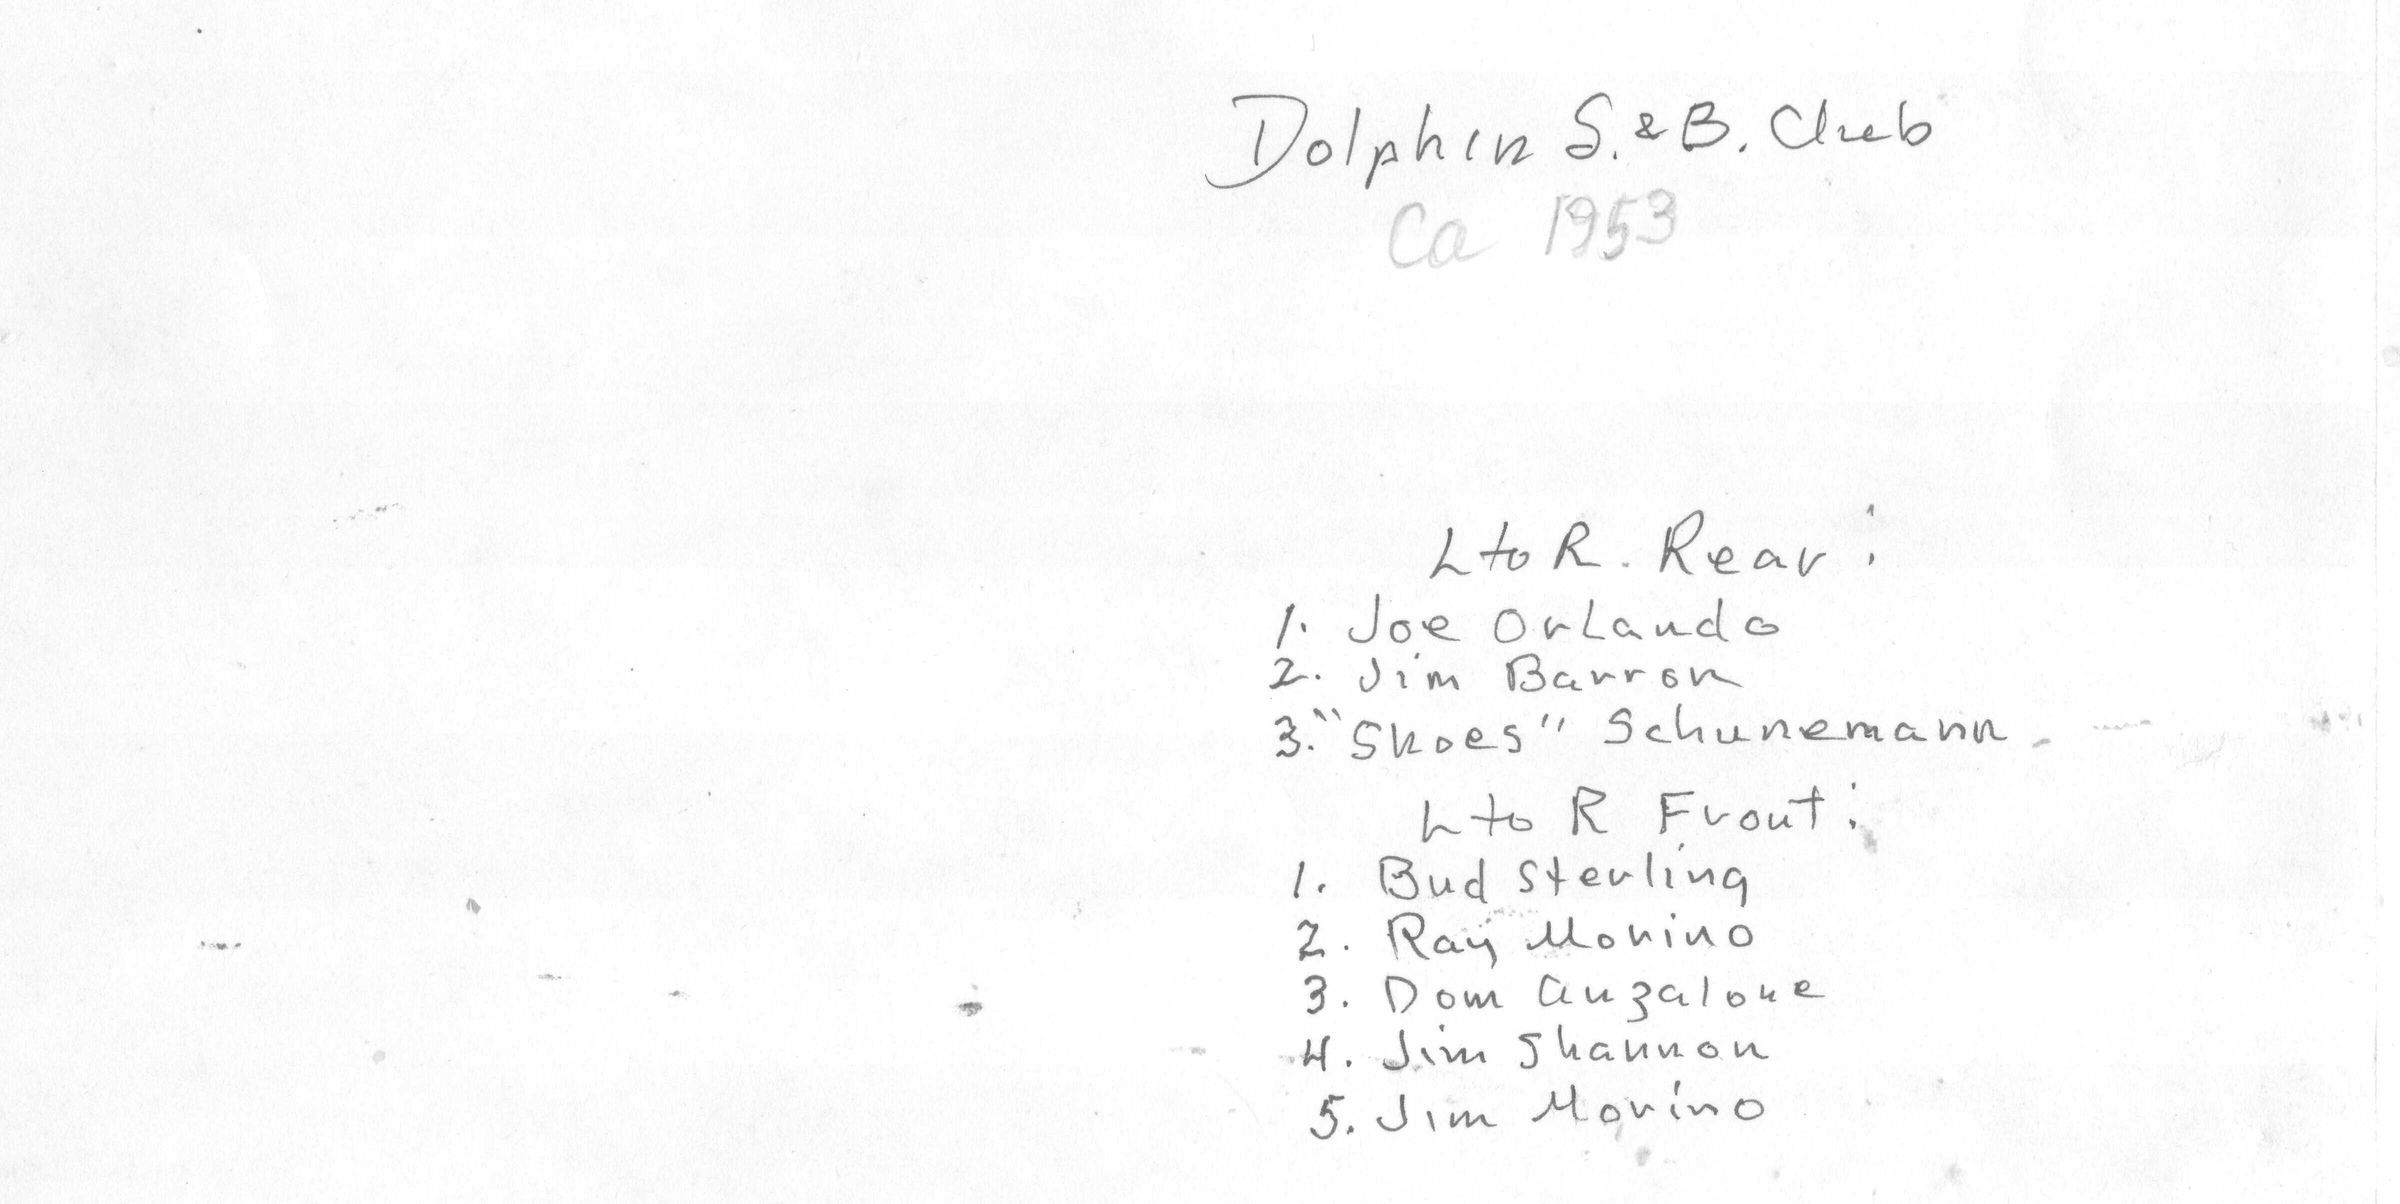 Dolphin S. & B. Club
Ca 1953
L to R. Rear:
1. Joe Orlando
2. Jim Barron
3. "Shoes" Schunemann
L to R Front:
1. Bud Sterling
2. Ray Morino
3. Dom Anzalone
4. Jim Shannon
5. Jim Morino